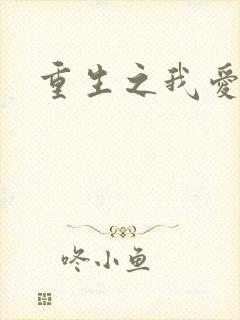 重生之我愛
咚小鱼